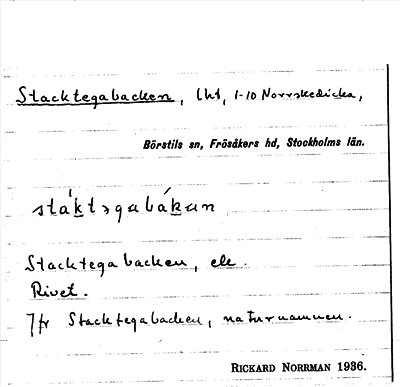 Stacktegabacken, lht, 1-10 Norrskedicka,
Börstils sn, Frösåkers hd, Stockholms län.
Stacktegabacken, ele.
Rivet.
Jfr Stacktegabacken, naturnamnen.
RICKARD NORRMAN 1936.